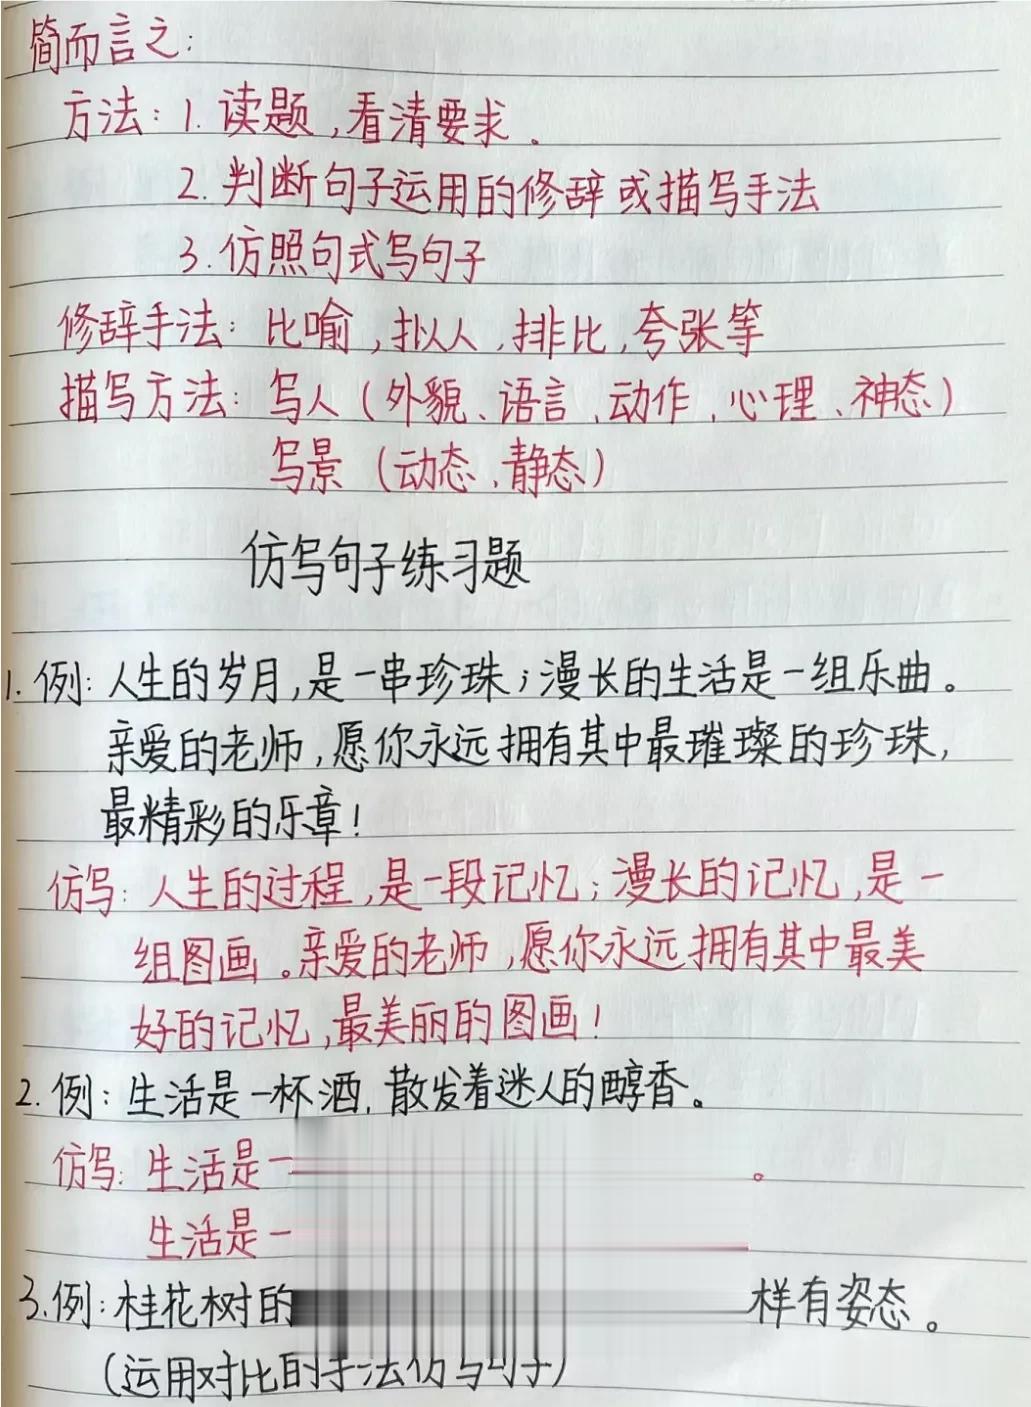 简而言之:
方法: 1. 读题,看清要求.
2. 判断句子运用的修辞或描写手法
3. 仿照句式写句子
修辞手法: 比喻,拟人,排比,夸张等
描写方法: 写人(外貌、语言、动作、心理、神态)
写景(动态、静态)
仿写句子练习题
1. 例: 人生的岁月,是一串珍珠;漫长的生活是一组乐曲。
亲爱的老师,愿你永远拥有其中最璀璨的珍珠,
最精彩的乐章!
仿写: 人生的过程,是一段记忆;漫长的记忆,是一
组图画。亲爱的老师,愿你永远拥有其中最美
好的记忆,最美丽的图画!
2. 例: 生活是一杯酒,散发着迷人的醇香。
仿写: 生活是一 。
生活是一
3. 例: 桂花树的 样有姿态。
(运用对比的手法仿写句子)